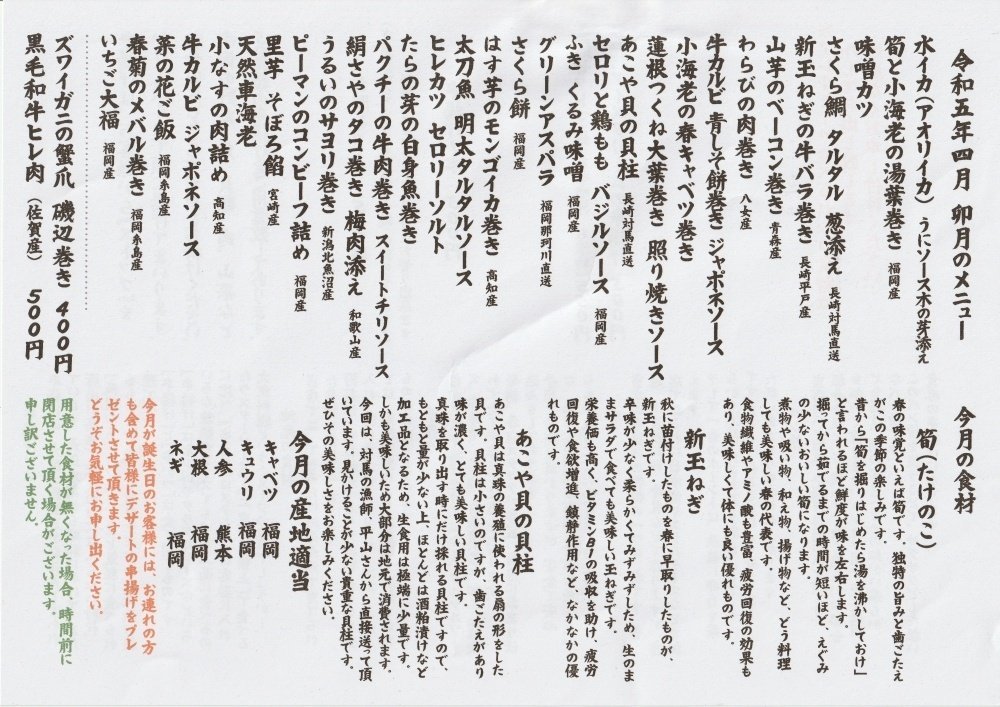 令和五年四月 卯月のメニュー
水イカ(アオリイカ) うにソース木の芽添え
筍と小海老の湯葉巻き 福岡産
味噌カツ
さくら鯛 タルタル 葱添え 長崎対馬直送
新玉ねぎの牛バラ巻き 長崎平戸産
山芋のベーコン巻き 青森産
わらびの肉巻き 八女産
牛カルビ 青しそ餅巻き ジャポネソース
小海老の春キャベツ巻き
蓮根つくね大葉巻き 照り焼きソース
あこや貝の貝柱 長崎対馬直送
セロリと鶏もも バジルソース 福岡産
ふき くるみ味噌 福岡産
グリーンアスパラ 福岡那珂川直送
さくら餅 福岡産
はす芋のモンゴイカ巻き 高知産
太刀魚 明太タルタルソース
ヒレカツ セロリーソルト
たらの芽の白身魚巻き
パクチーの牛肉巻き スイートチリソース
絹さやのタコ巻き 梅肉添え 和歌山産
うるいのサヨリ巻き 新潟北魚沼産
ピーマンのコンビーフ詰め 福岡産
里芋 そぼろ餡 宮崎産
天然車海老
小なすの肉詰め 高知産
牛カルビ ジャポネソース
菜の花ご飯 福岡糸島産
春菊のメバル巻き 福岡糸島産
いちご大福 福岡産
ズワイガニの蟹爪 磯辺巻き 400円
黒毛和牛ヒレ肉(佐賀産) 500円
今月の食材
筍(たけのこ)
春の味覚といえば筍です。独特の旨みと歯ごたえ
がこの季節の楽しみです。
昔から「筍を掘りはじめたら湯を沸かしておけ」
と言われるほど鮮度が味を左右します。
掘ってから茹でるまでの時間が短いほど、えぐみ
の少ないおいしい筍になります。
煮物や吸い物、和え物、揚げ物など、どう料理
しても美味しい春の代表です。
食物繊維やアミノ酸も豊富、疲労回復の効果も
あり、美味しくて体にも良い優れものです。
新玉ねぎ
秋に苗付けしたものを春に早取りしたものが、
新玉ねぎです。
辛味が少なく柔らかくてみずみずしため、生のま
まサラダで食べても美味しい玉ねぎです。
栄養価も高く、ビタミンB1の吸収を助け、疲労
回復や食欲増進、鎮静作用など、なかなかの優
れものです。
あこや貝の貝柱
あこや貝は真珠の養殖に使われる扇の形をした
貝です。貝柱は小さいのですが、歯ごたえがあり
味が濃く、とても美味しい貝柱です。
真珠を取り出す時にだけ採れる貝柱ですので、
もともと量が少ない上、ほとんどは酒粕漬けなど
加工品となるため、生食用は極端に少量です。
しかも美味しいため大部分は地元で消費されます。
今回は、対馬の漁師、平山さんから直接送って頂
いています。見かけることが少ない貴重な貝柱です。
ぜひその美味しさをお楽しみください。
今月の産地適当
キャベツ 福岡
キュウリ 福岡
人参 熊本
大根 福岡
ネギ 福岡
今月が誕生日のお客様には、お連れの方
も含めて皆様にデザートの串揚げをプレ
ゼントさせて頂きます。
どうぞお気軽にお申し出ください。
用意した食材が無くなった場合、時間前に
閉店させて頂く場合がございます。
申し訳ございません。